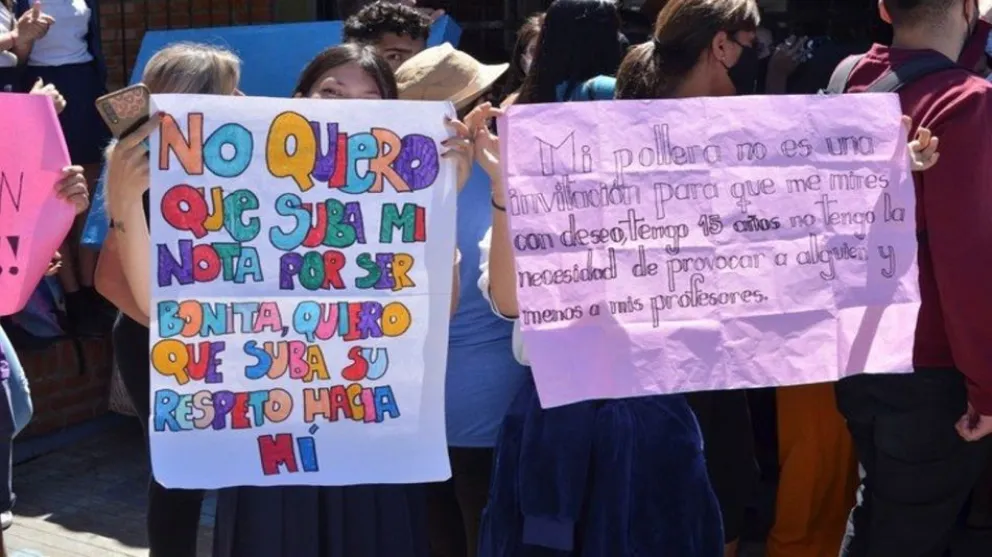 N
!
NO QUIERO
QUE SUBA MI
NOTA POR SER
BONITA, QUIERO
QUE SUBA SU
RESPETO HACIA
MÍ
Mi pollera no es una
invitación para que me mires
con deseo, tengo 15 años no tengo la
necesidad de provocar a alguien y
menos a mis profesores.